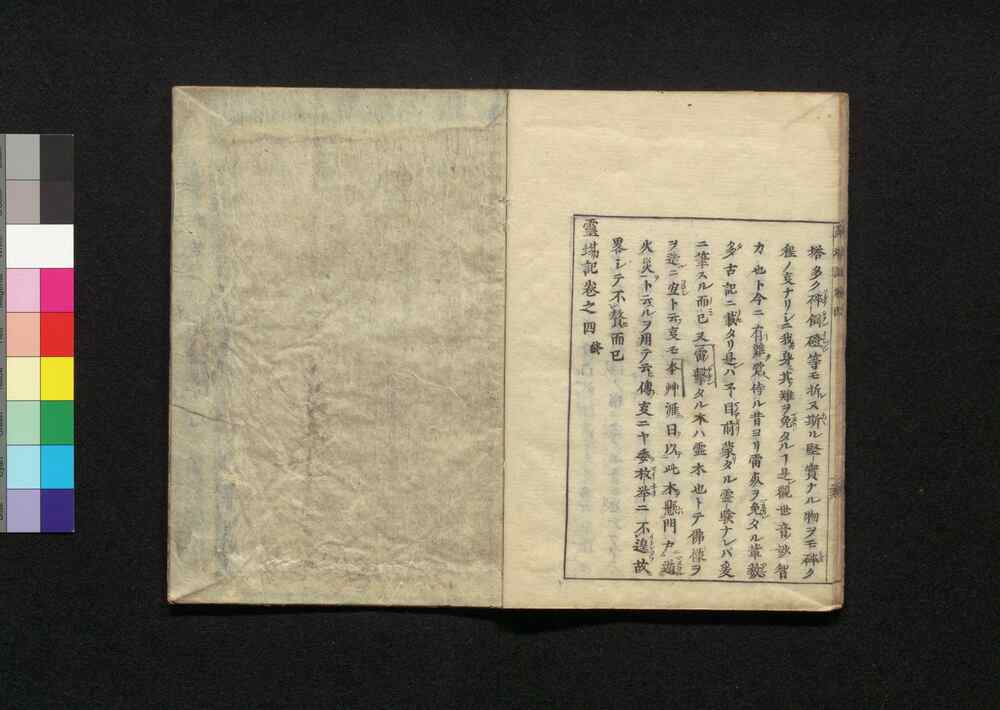 塔多ク砕銅磴等モ折ス斯ル堅實ナル物ヲモ砕ク
程ノ変ナリシニ我身其難ヲ免タルヿ是觀世音妙智
カ也ト今ニ有難ク侍ル昔ヨリ雷災ヲ免タル輩数
多古記ニ載タリ是ハ予目前蒙タル霊驗ナレバ爰
ニ筆スル而已又雷撃タル木ハ霊木也トテ佛像ヲ
ヲ造ニ宜ト云変モ本艸滙日以此木懸門戸
火災ト云ルヲ用テ云傳変ニヤ委枚挙ニ不遑故
畧シテ不贅而已
霊場記巻之四終